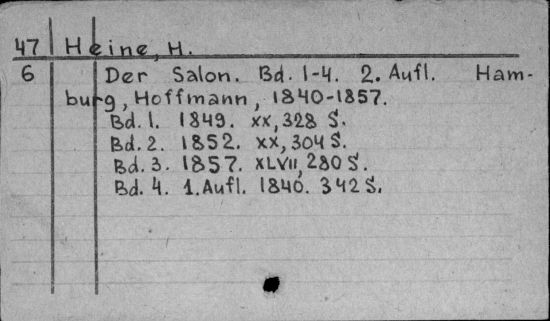 47 Heine, H.
6 Der Salon. Bd. 1-4. 2. Aufl. Ham-
burg, Hoffmann, 1840-1857.
Bd. 1. 1849. XX, 328 S.
Bd. 2. 1852. XX, 304 S.
Bd. 3. 1857. XLVII, 280 S.
Bd. 4. 1. Aufl. 1840. 342 S.